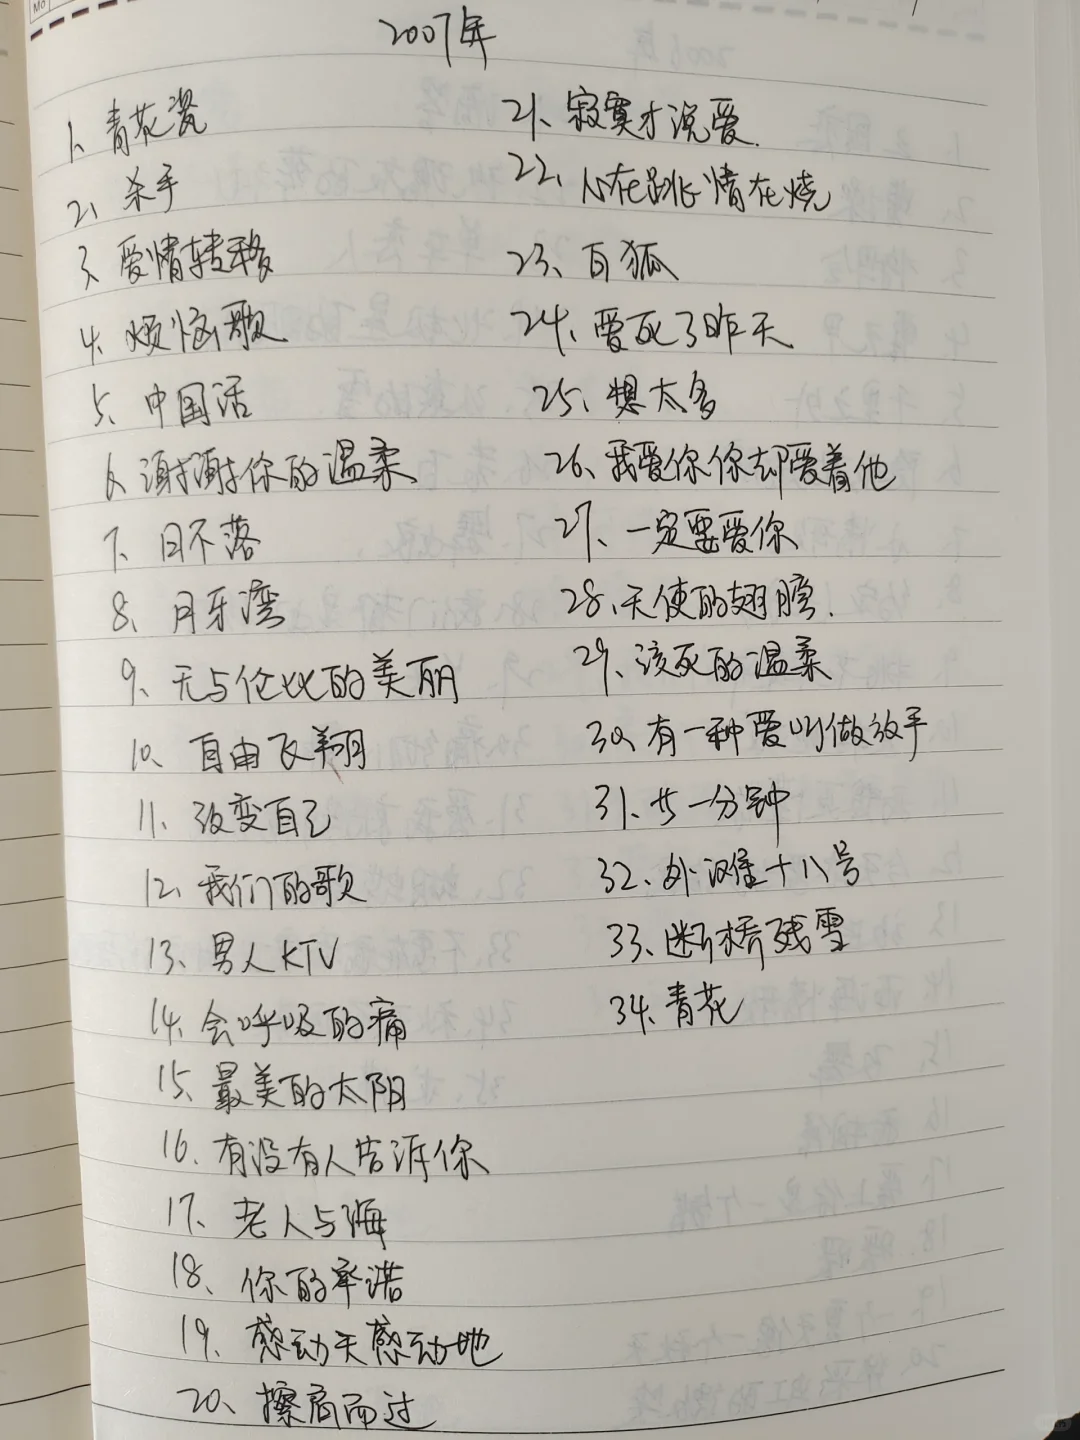 2007年
1、青花瓷
2、杀手
3、爱情转移
4、烦恼歌
5、中国话
6、谢谢你的温柔
7、日不落
8、月牙湾
9、无与伦比的美丽
10、自由飞翔
11、改变自己
12、我们的歌
13、男人KTV
14、会呼吸的痛
15、最美的太阳
16、有没有人告诉你
17、老人与海
18、你的承诺
19、感动天感动地
20、擦肩而过
21、寂寞才说爱
22、心在跳情在烧
23、白狐
24、爱死了昨天
25、想太多
26、我爱你你却爱着他
27、一定要爱你
28、天使的翅膀.
29、该死的温柔
30、有一种爱叫做放手
31、廿一分钟
32、外滩十八号
33、断桥残雪
34、青花